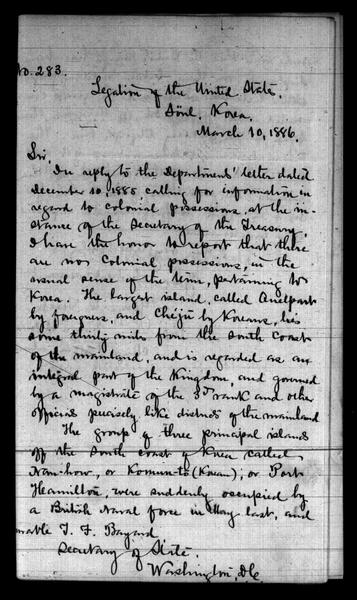 No. 283.
Legation of the United States.
Söul, Korea,
March 10, 1886.
Sir,
In reply to the Departments' letter dated
December 10 1885 calling for information in
regard to colonial possessions, at the in-
stance of the Secretary of the Treasury,
I have the honor to report that there
are no colonial possessions, in the
usual sense of the term, pertaining to
Korea. The largest island, called Quelpart
by foreigners, and Cheju by Koreans, lies
some thirty miles from the south coast
of the mainland, and is regarded as an
integral part of the Kingdom, and governed
by a magistrate of the 3d rank and other
officials precisely like districts of the mainland
The group of three principal islands
off the South coast of Korea called
or Komun-to (Korean); or Port
Hamilton, were suddenly occupied by
a British Naval force in May last, and
T. F. Bayard
Secretary of State.
Washington, D.C.